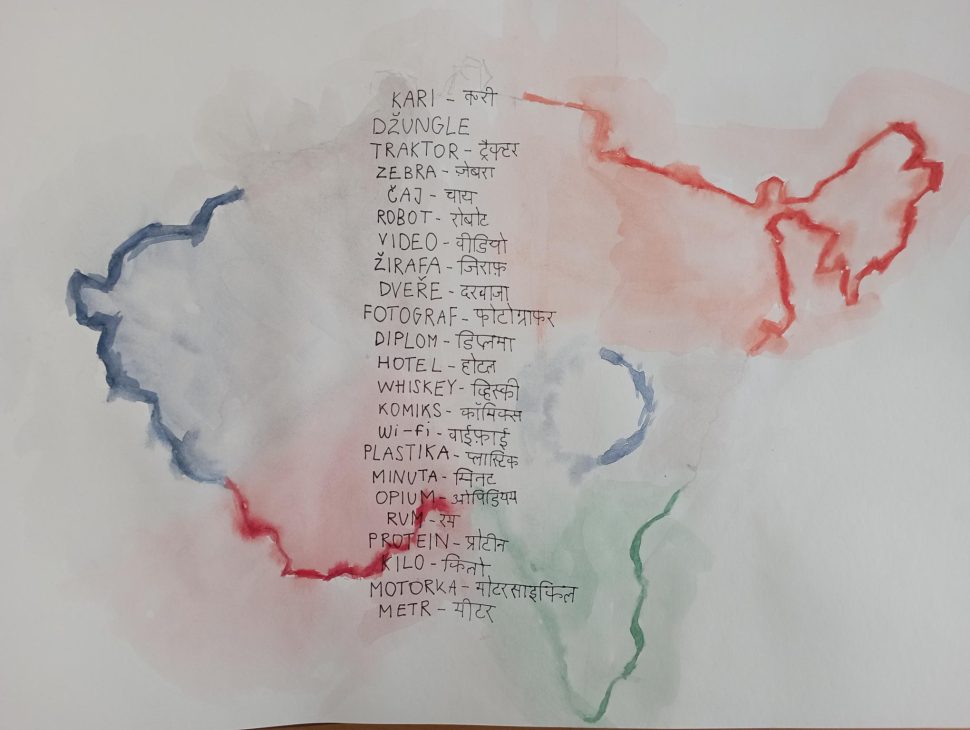 KARI - करी
DŽUNGLE
TRAKTOR - ट्रैक्टर
ZEBRA - ज़ेबरा
ČAJ - चाय
ROBOT - रोबोट
VIDEO - वीडियो
ŽIRAFA - जिराफ़
DVEŘE - दरवाजा
FOTOGRAF - फोटोग्राफर
DIPLOM - डिप्लमा
HOTEL - होटल
WHISKEY - व्हिस्की
KOMIKS - कॉमिक्स
Wi-fi - वाईफ़ाई
PLASTIKA - प्लास्टिक
MINUTA - मिनट
OPIUM - ओपिडियम
RUM - रम
PROTEIN - प्रोटीन
KILO - कितो
MOTORKA - मोटरसाइकिल
METR - मीटर